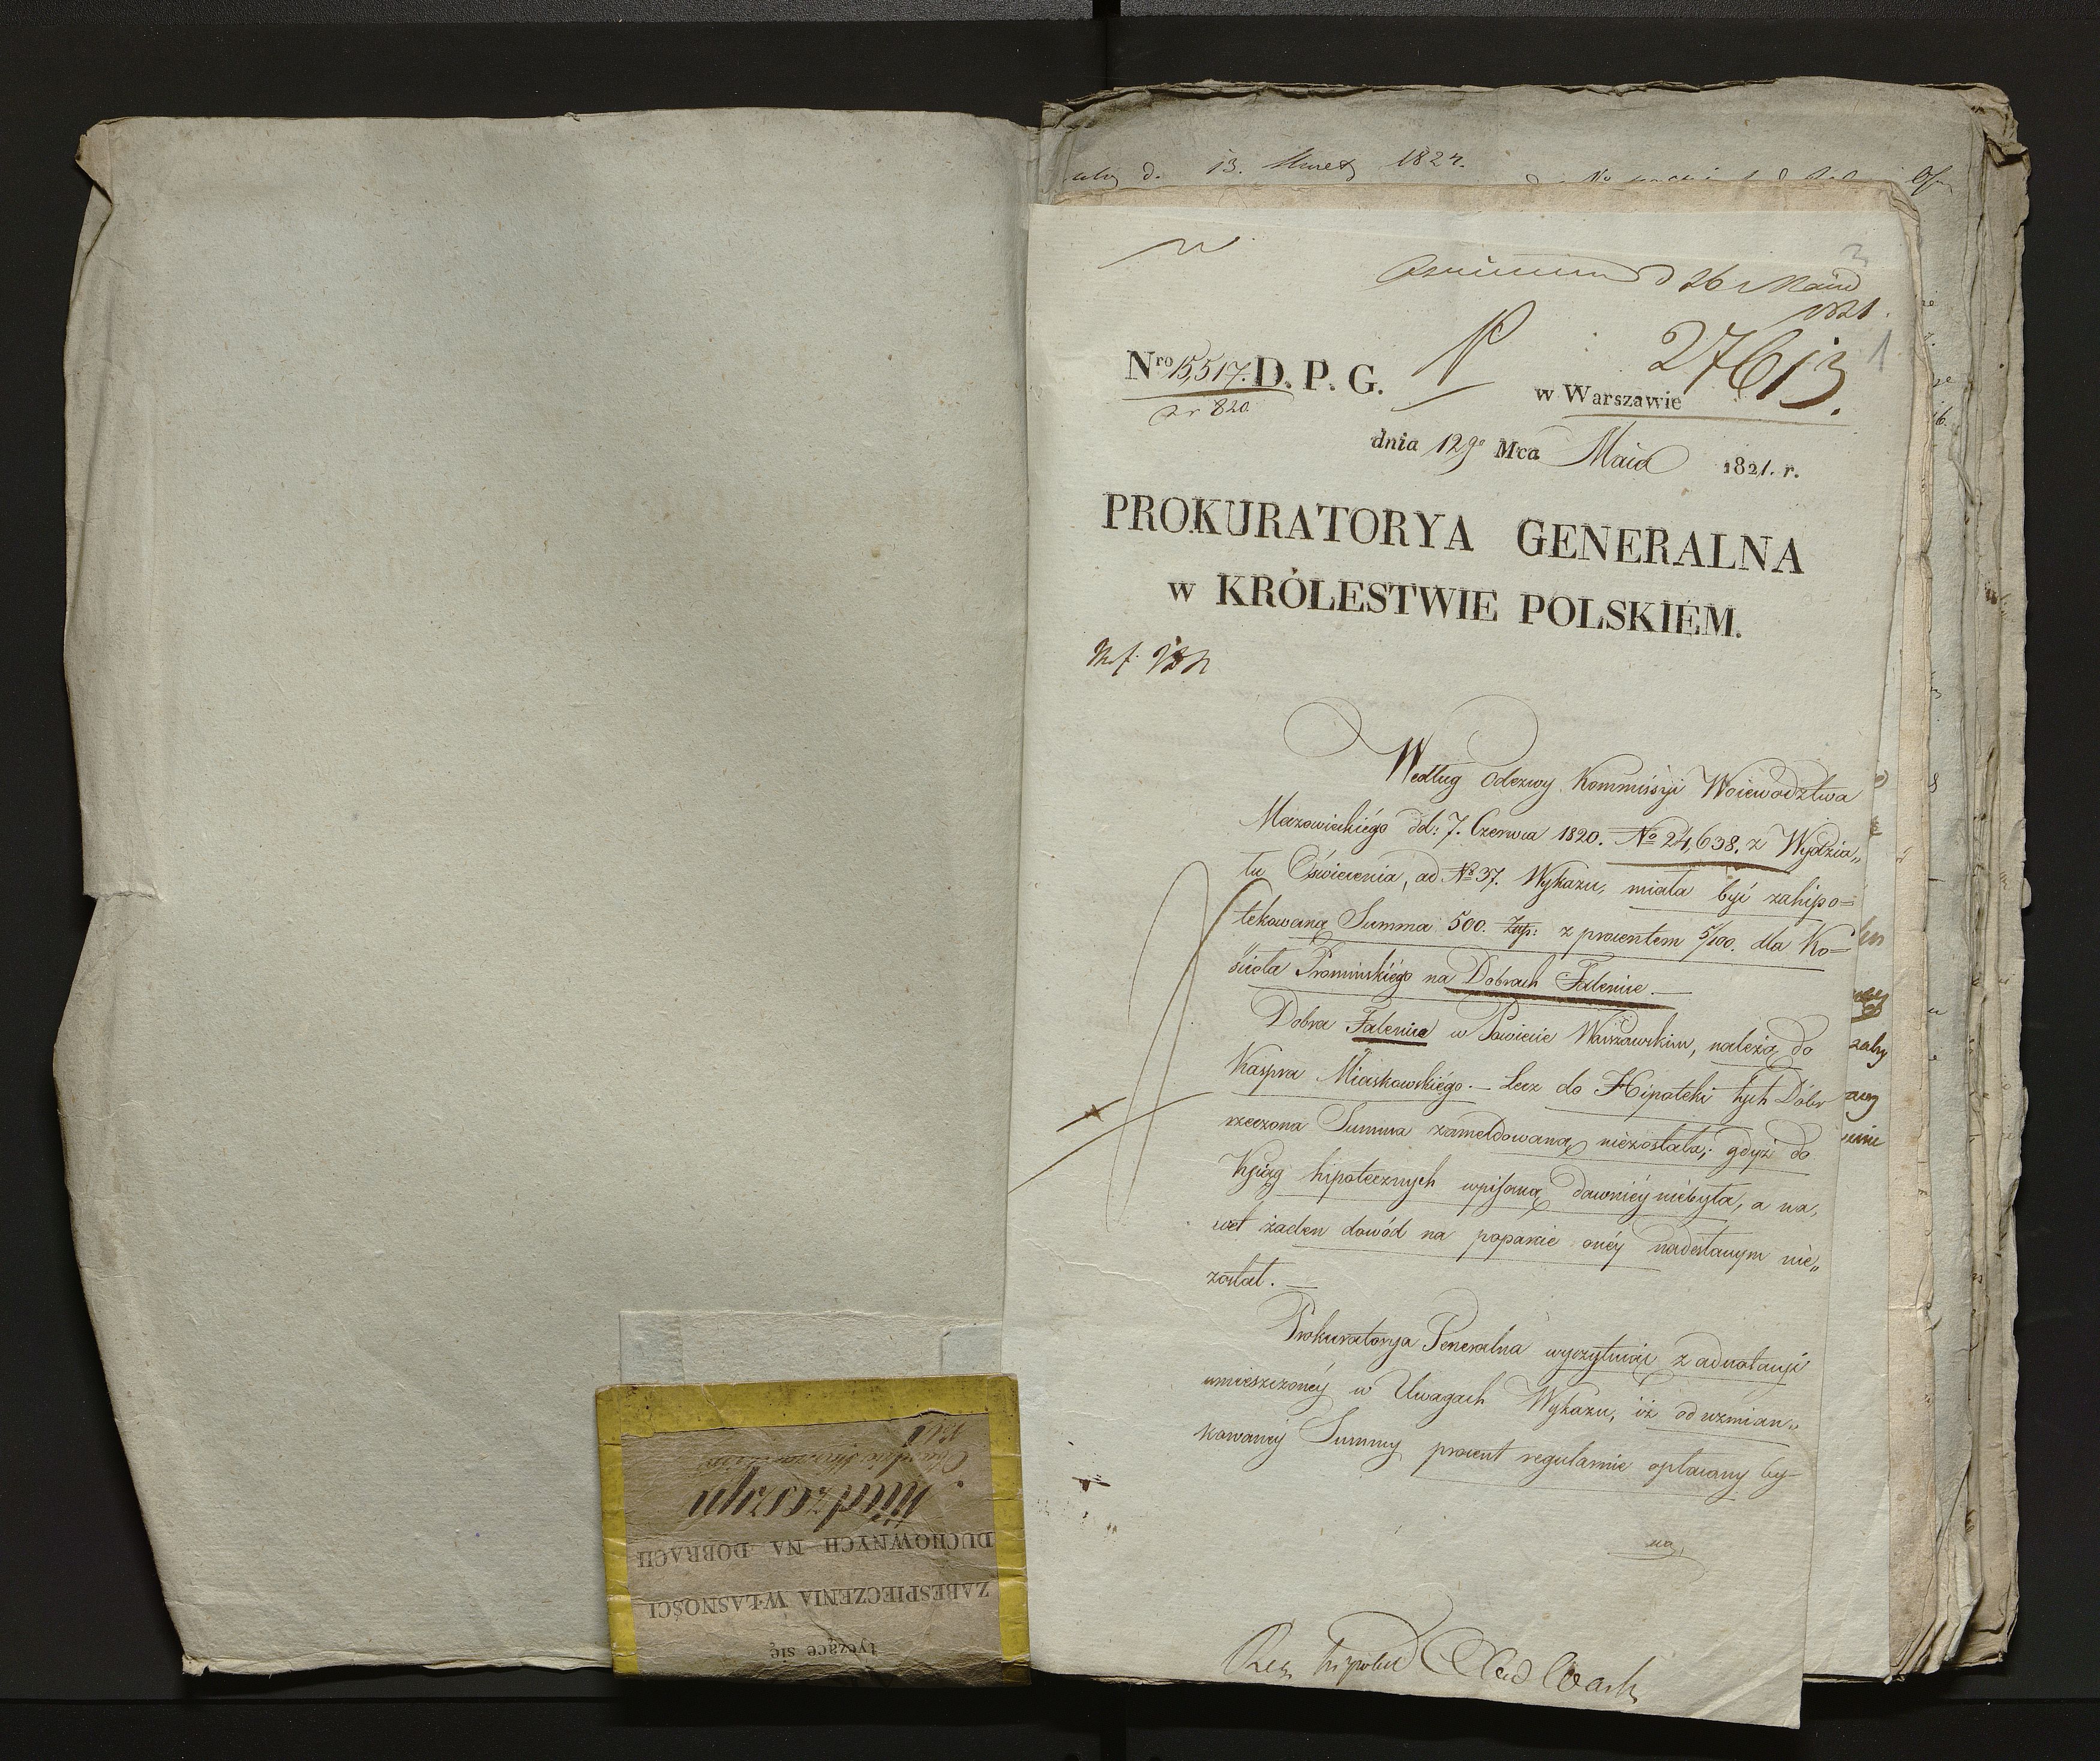 d. 13. 1824.
d 26 Maia
1821.
27613.
1
Nro 15,517. D. P. G.
w Warszawie
820
dnia 12go Mca Maia 1821. r.
PROKURATORYA GENERALNA
w KRÓLESTWIE POLSKIÉM.
Według Odezwy Kommissyi Woiewodztwa
Mazowieckiégo dd: 7. Czerwca 1820. No 24,638. z Wydzia„
łu Oświecenia, ad No 37. Wykazu, miała być zahipo=
tekowaną Summa 500. Złłp: z procentem 5/100. dla Ko=
ścioła Promińskiégo na Dobrach Falenice. —
Dobra Falenica w Powiecie Warszawskim, należą do
Kaspra Miaskowskiégo. — Lecz do Hipoteki tych Dóbr
rzeczona Summa zameldowaną niezostała; gdyż do
Ksiąg hipotecznych wpisaną dawniéy niebyła, a na„
wet żaden dowód na poparcie onéy nadesłanym nie„
został. —
Prokuratorya Generalna wyczytuiąc z adnotacyi
umieszczonéy w Uwagach Wykazu, iż od wzmian„
kowanéy Summy procent regularnie opłacany by—
tyczące się
ZABESPIECZENIA WŁASNOŚCI
DUCHOWNYCH NA DOBRACH